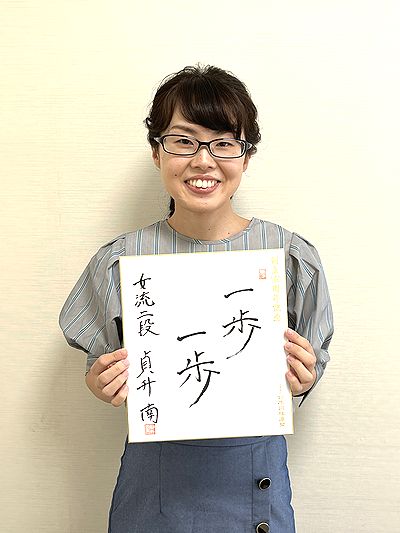 一歩
一歩
女流二段 貞升 南